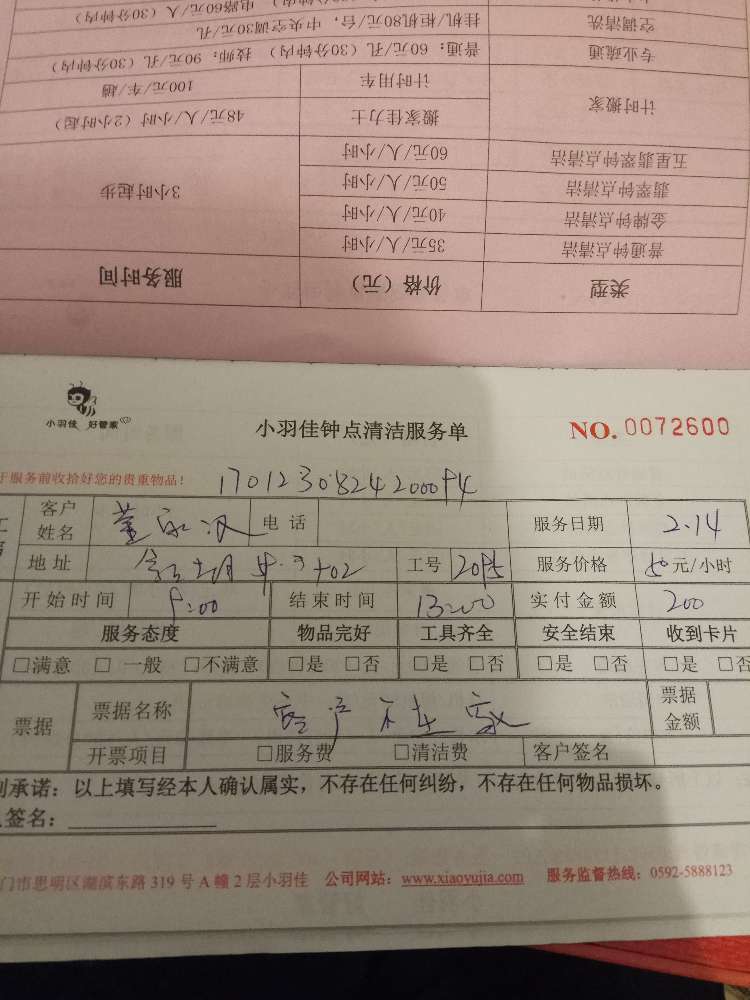 类型 价格（元） 服务时间
普通钟点清洁 35元/人/小时 3小时起步
金牌钟点清洁 40元/人/小时
翡翠钟点清洁 50元/人/小时
五星翡翠钟点清洁 60元/人/小时
计时搬家 搬家佳力士 48元/人/小时（2小时起）
计时用车 100元/车/趟
专业疏通 普通：60元/孔（30分钟内） 技师：90元/孔（30分钟内）
空调清洗 挂机/柜机80元/台，中央空调30元/孔
电路60元/人（30分钟内）
小羽佳 好管家
小羽佳钟点清洁服务单
NO. 0072600
于服务前收拾好您的贵重物品！
客户姓名 电话 服务日期 2.14
地址 工号 2095 服务价格 50元/小时
开始时间 9:00 结束时间 13:00 实付金额 200
服务态度 物品完好 工具齐全 安全结束 收到卡片
□满意 □一般 □不满意 □是 □否 □是 □否 □是 □否 □是 □否
票据 票据名称 客户不在家 票据金额
开票项目 □服务费 □清洁费 客户签名
承诺：以上填写经本人确认属实，不存在任何纠纷，不存在任何物品损坏。
签名：
门市思明区湖滨东路319号A幢2层小羽佳 公司网站：www.xiaoyujia.com 服务监督热线：0592-5888123